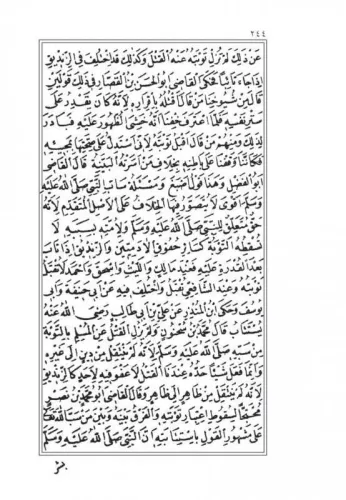 ٢٤٤
عن ذلك لم تزل توبته عنه القتل وكذلك قد اختلف في الزنديق
إذا جاء تائبا فحكى القاضي ابو الحسن بن القصار في ذلك قولين
قال من شيوخنا من قال اقتله باقراره لأنه كان يقدر على
ستر نفسه فلما اعترف خفنا أنه خشي الظهور عليه فبادر
لذلك ومنهم من قال اقبل توبته لأني استدل على صحتها بمجيئه
فكأننا وقفنا على باطنه بخلاف من اسرته البينة قال القاضي
ابو الفضل وهذا قول اصبغ ومسئلة ساب النبي صلى الله عليه
وسلم اقوى لا يتصور فيها الخلاف على الاصل المتقدم لأنه
حق متعلق للنبي صلى الله عليه وسلم ولأمته بسببه لا
تسقطه التوبة كسائر حقوق الآدميين والزنديق اذا تاب
بعد القدرة عليه فعند مالك والليث واسحق واحمد لا تقبل
توبته وعند الشافعي تقبل واختلف فيه عن أبي حنيفة وأبي
يوسف وحكى ابن المنذر عن علي بن أبي طالب رضي الله عنه
يستتاب قال محمد بن سحنون ولم يزل القتل عن المسلم بالتوبة
من سبه صلى الله عليه وسلم لأنه لم ينتقل من دين إلى غيره
وإنما فعل شيئا حده عندنا القتل لا عفو فيه لأحد كالزنديق
لأنه لم ينتقل من ظاهر إلى ظاهر وقال القاضي أبو محمد بن نصر
محتجا لسقوط اعتبار توبته والفرق بينه وبين من سب الله تعالى
على مشهور القول باستتابته أن النبي صلى الله عليه وسلم
بشر